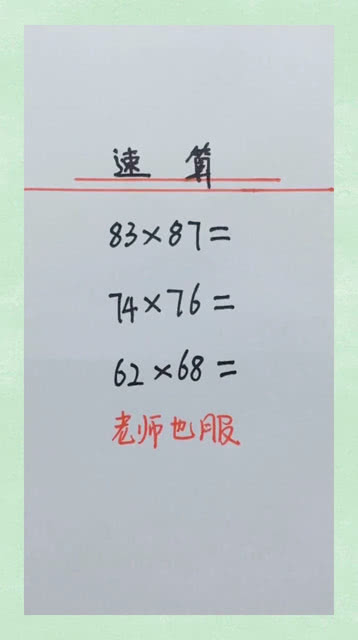 速算
83×87=
74×76=
62×68=
老师也服